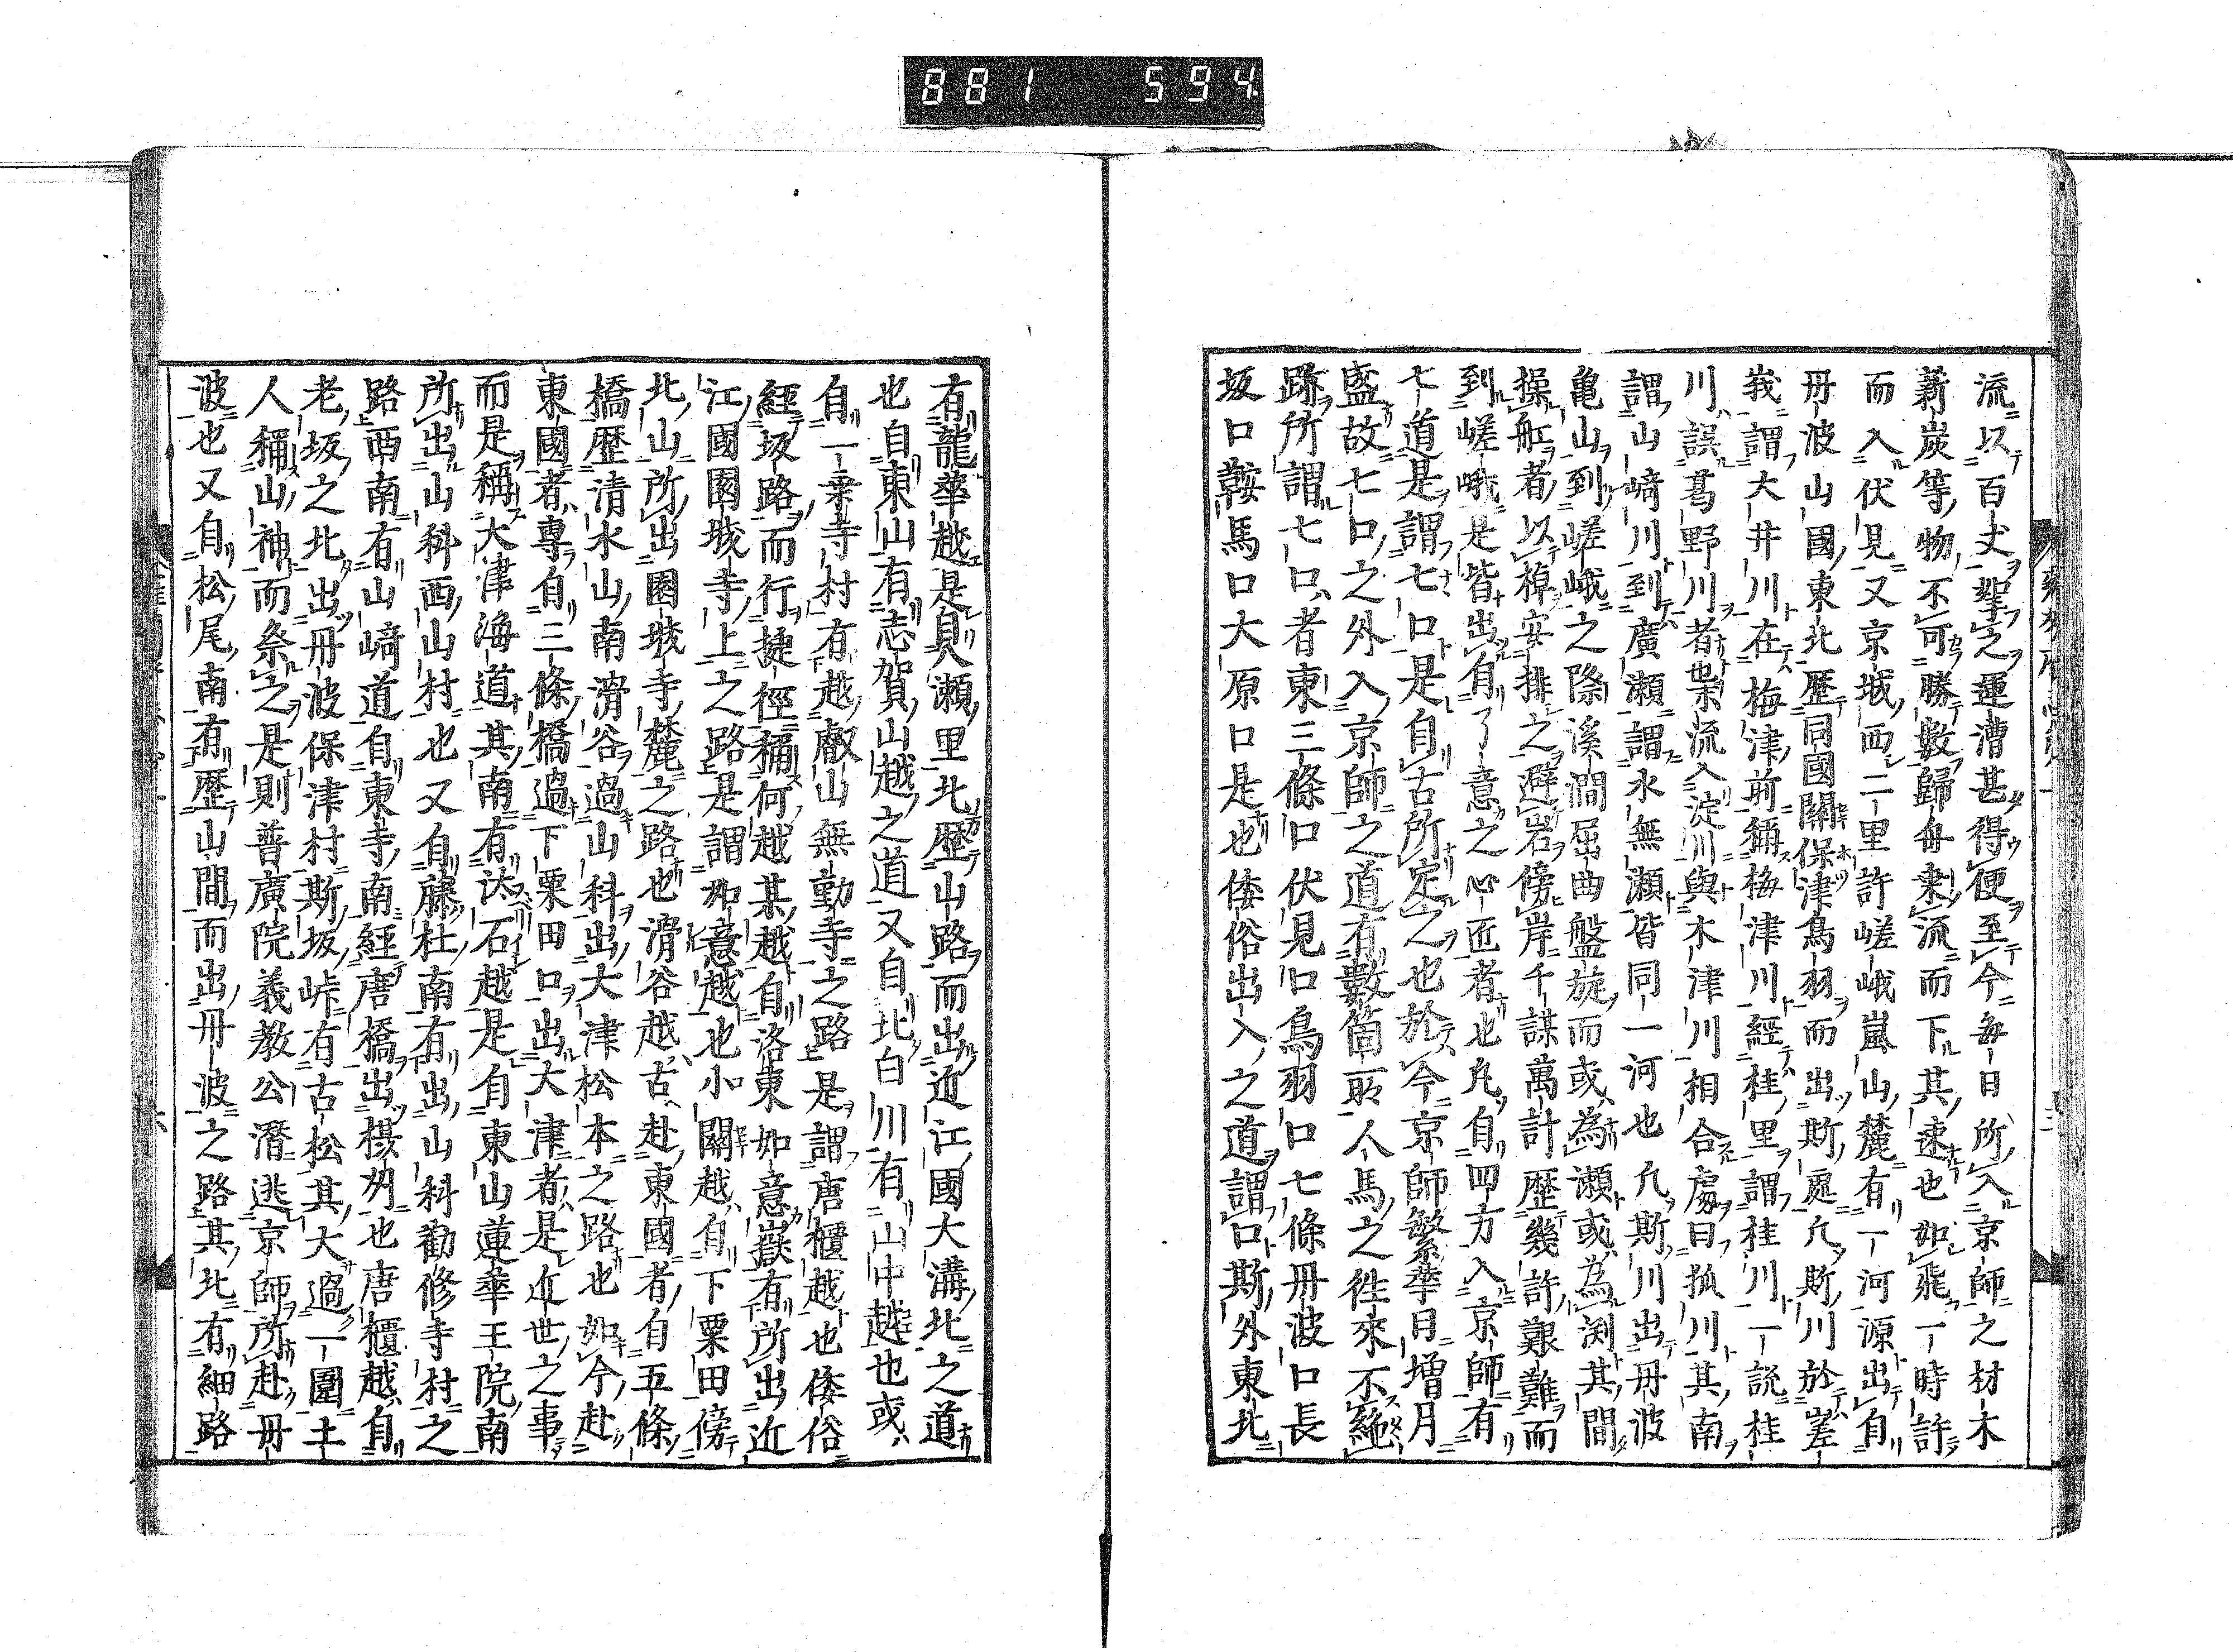 881 594
流以百丈挐之運漕甚得便至今毎日所入京師之材木
薪炭等物不可勝數歸舟乗流而下其速也如飛一時許
而入伏見又京城西二里許嵯峨嵐山麓有一河源出自
丹波山國東北歴同國闗保津鳥羽而出斯處凢斯川於嵳
峩謂大井川在梅津前稱梅津川經桂里謂桂川一説桂
川誤葛野川者也桒流入淀川與木津川相合處曰狐川其南
謂山﨑川到廣瀬謂水無瀬皆同一河也凢斯川出丹波
亀山到嵯峨之際溪澗屈曲盤旋而或為瀬或為渕其間
操舩者以棹安排之避岩傍岸千謀萬計歴幾許艱難而
到嵯峨是皆出自了意之心匠者也凢自四方入京師有
七道是謂七口是自古所定之也於今京師繁華日增月
盛故七口之外入京師之道有數箇所人馬之徃來不絶
跡所謂七口者東三條口伏見口鳥羽口七條丹波口長
坂口鞍馬口大原口是也倭俗出入之道謂口斯外東北
有龍華越是自八瀬里北歴山路而出近江國大溝北之道
也自東山有志賀山越之道又自北白川有山中越也或
自一乗寺村有越叡山無動寺之路是謂唐櫃越也倭俗
經坂路而行捷徑稱何越某越自洛東如意嶽有所出近
江國園城寺上之路是謂如意越也小關越自下粟田傍
北山所出園城寺麓之路也滑谷越古赴東國者自五條
橋歴清水山南滑谷過山科出大津松本之路也如今赴
東國者專自三條橋過下粟田口出大津者是近世之事
而是稱大津海道其南有汰石越是自東山蓮華王院南
所出山科西山村也又自藤杜南有出山科勸修寺村之
路西南有山﨑道自東寺南經唐橋出楊州也唐櫃越自
老坂之北出丹波保津村斯坂峠有古松其大過一圍土
人稱山神而祭之是則普廣院義教公潛逃京師所赴丹
波也又自松尾南有歴山間而出丹波之路其北有細路